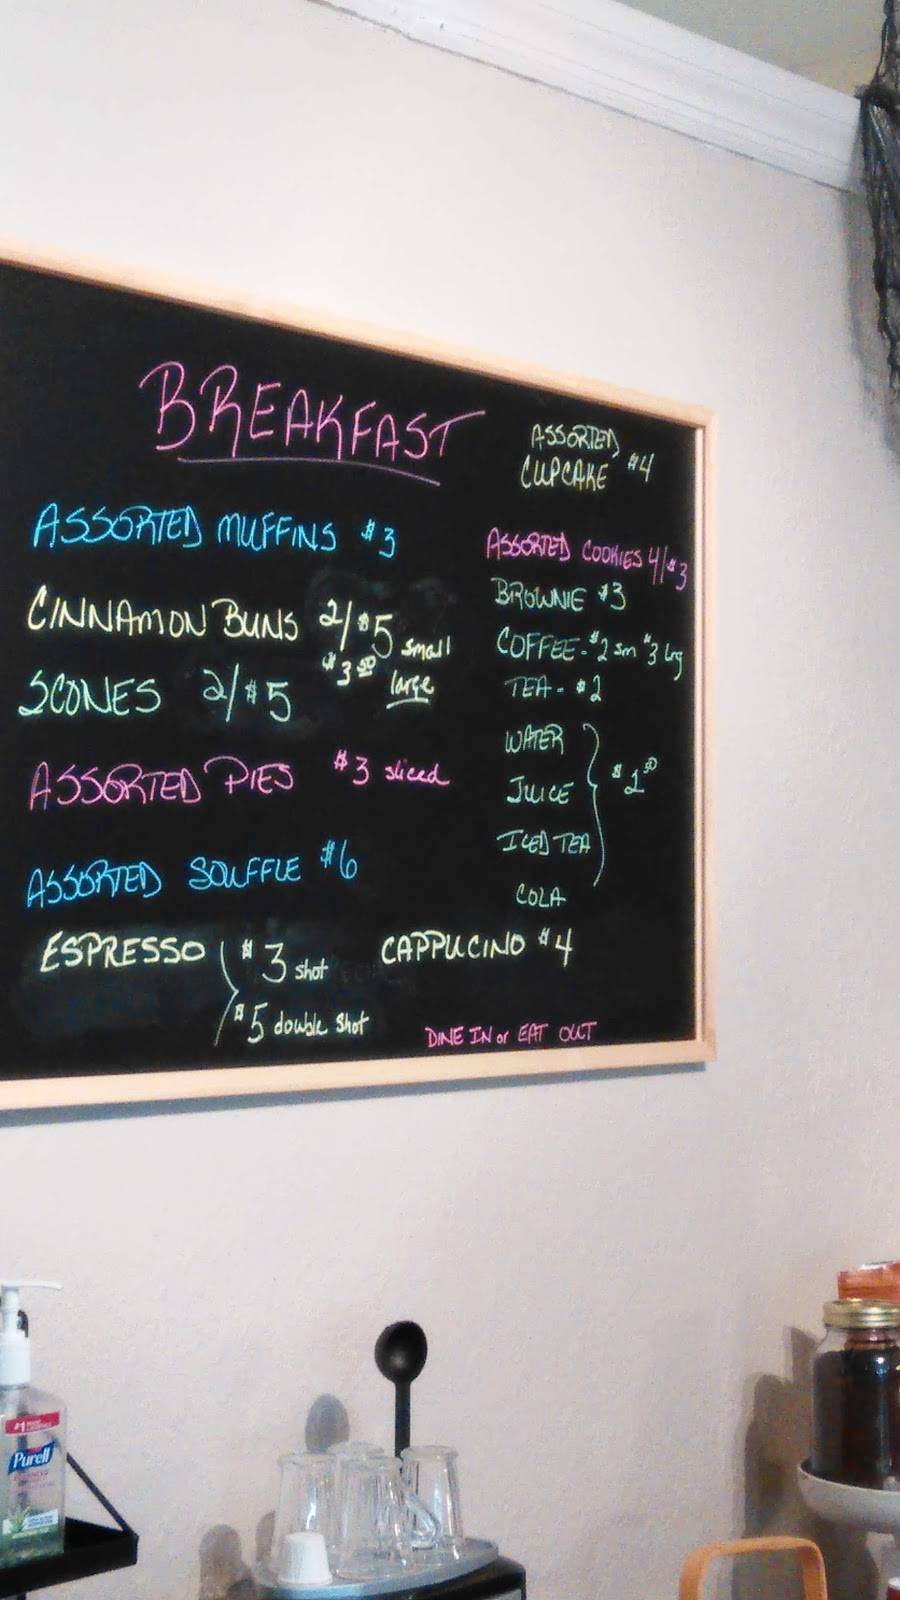 BREAKFAST
ASSORTED MUFFINS $3
CINNAMON BUNS 2/$5 small
$3 50 large
SCONES 2/$5
ASSORTED PIES $3 sliced
ASSORTED SOUFFLE $6
ESPRESSO $3 shot
$5 double shot
ASSORTED
CUPCAKE $4
ASSORTED COOKIES 4/$3
BROWNIE $3
COFFEE - $2 sm $3 lrg
TEA - $2
WATER
JUICE
$1 50
ICED TEA
COLA
CAPPUCINO $4
DINE IN or EAT OUT
#1
Purell